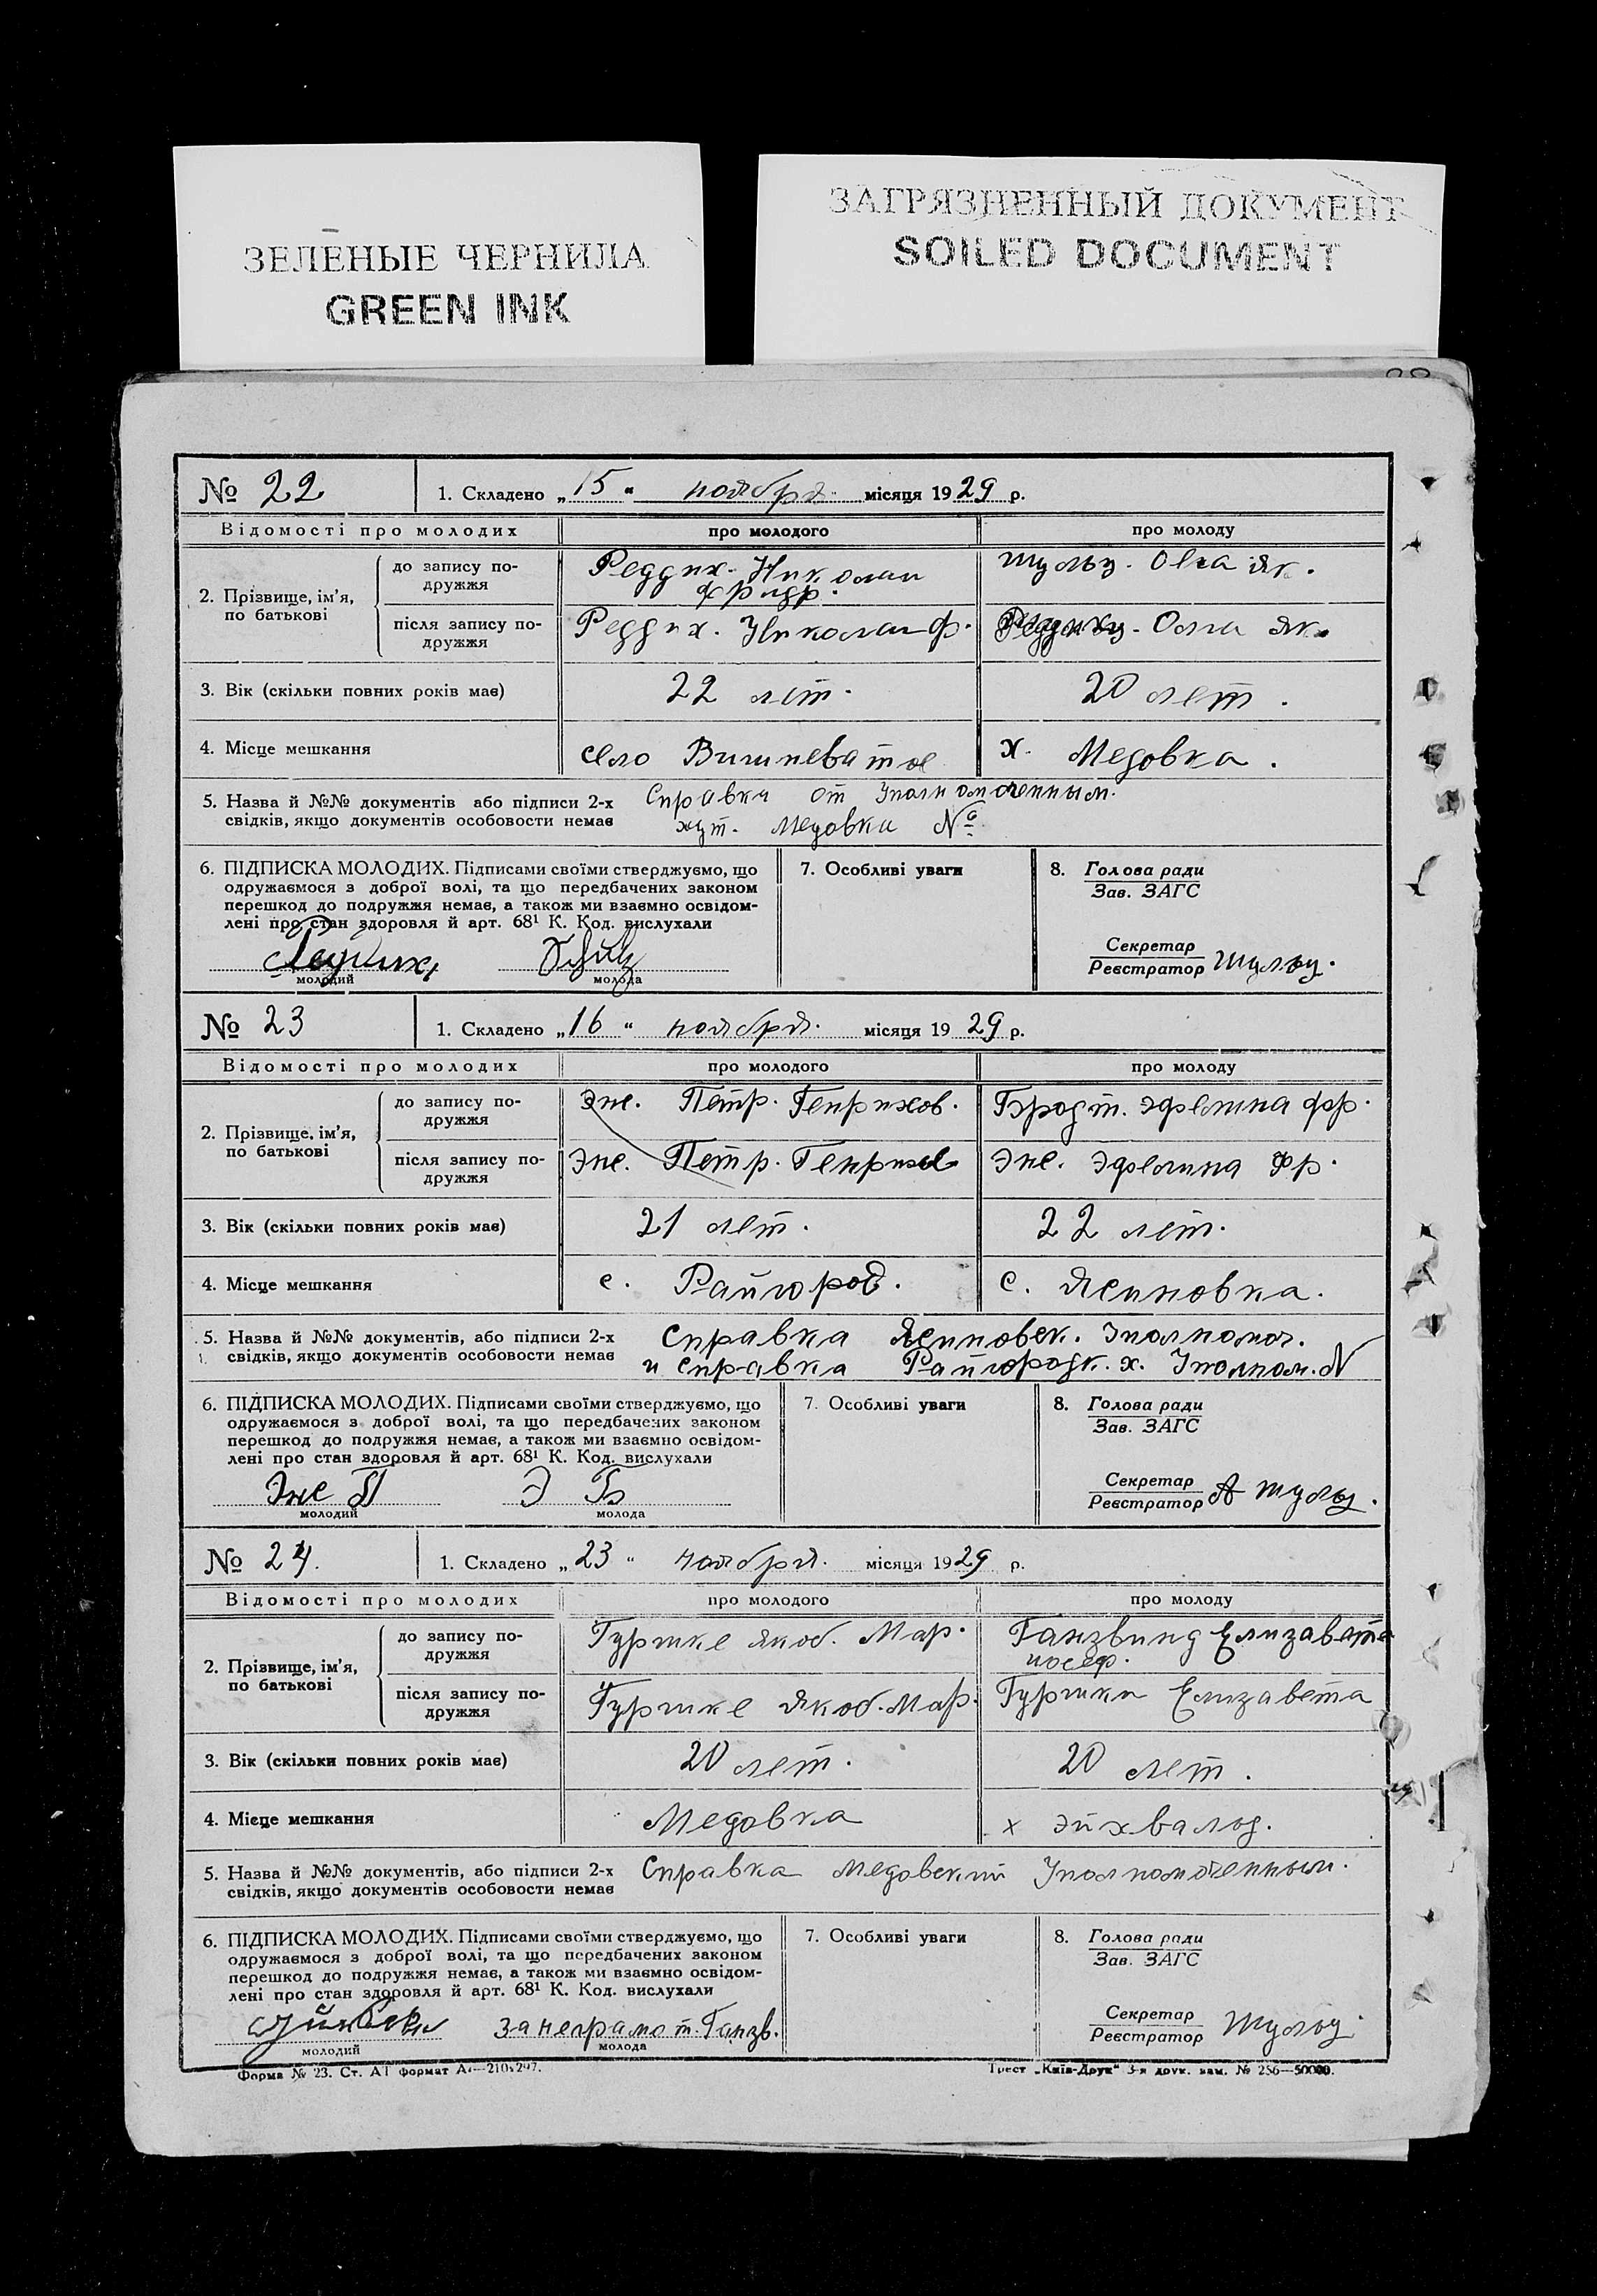 ЗЕЛЁНЫЕ ЧЕРНИЛА
GREEN INK
ЗАГРЯЗНЕННЫЙ ДОКУМЕНТ
SOILED DOCUMENT
№ 22
1. Складено „15“ ноября місяця 1929 р.
Відомості про молодих
про молодого
про молоду
2. Прізвище, ім’я, по батькові
до запису по-
дружжя
Реддих. Николаи
Фридр.
Шульц. Олга Як.
після запису по-
дружжя
Реддих. Николаи Ф.
Олга Як.
3. Вік (скільки повних років має)
22 лет.
20 лет.
4. Місце мешкання
село Вишневатое
х. Медовка.
5. Назва й №№ документів або підписи 2-х
свідків, якщо документів особовости немає
Справка от Уполномоченным.
хут. Медовка №
6. ПІДПИСКА МОЛОДИХ. Підписами своїми стверджуємо, що
одружаємося з доброї волі, та що передбачених законом
перешкод до подружжя немає, а також ми взаємно освідом-
лені про стан здоровля й арт. 68¹ К. Код. вислухали
молодий
молода
7. Особливі уваги
8. Голова ради
Зав. ЗАГС
Секретар
Реєстратор Шульц.
№ 23
1. Складено „16“ ноября. місяця 1929 р.
Відомості про молодих
про молодого
про молоду
2. Прізвище, ім’я,
по батькові
до запису по-
дружжя
Эне. Петр. Генрихов.
Бродт. Эфелина Фр.
після запису по-
дружжя
Эне. Петр. Генрихов
Эне. Эфелина Фр.
3. Вік (скільки повних років має)
21 лет.
22 лет.
4. Місце мешкання
с. Райгород.
с. Ясиновка.
5. Назва й №№ документів, або підписи 2-х
свідків, якщо документів особовости немає
Справка Ясиновск. Уполномоч.
и справка Райгородк. х. Уполном. N
6. ПІДПИСКА МОЛОДИХ. Підписами своїми стверджуємо, що
одружаємося з доброї волі, та що передбачених законом
перешкод до подружжя немає, а також ми взаємно освідом-
лені про стан здоровля й арт. 68¹ К. Код. вислухали
Эне П
молодий
молода
7. Особливі уваги
8. Голова ради
Зав. ЗАГС
Секретар
Реєстратор А Шульц.
№ 24.
1. Складено „23“ ноября. місяця 1929 р.
Відомості про молодих
про молодого
про молоду
2. Прізвище, ім’я,
по батькові
до запису по-
дружжя
Гуршке Якоб. Мар.
Ганзвинд Елизавета
иосеф.
після запису по-
дружжя
Гуршке Якоб. Мар.
Гуршки Елизавета
3. Вік (скільки повних років має)
20 лет.
20 лет.
4. Місце мешкання
Медовка
х Эйхвалд.
5. Назва й №№ документів, або підписи 2-х
свідків, якщо документів особовости немає
Справка Медовский Уполномоченным.
6. ПІДПИСКА МОЛОДИХ. Підписами своїми стверджуємо, що
одружаємося з доброї волі, та що передбачених законом
перешкод до подружжя немає, а також ми взаємно освідом-
лені про стан здоровля й арт. 68¹ К. Код. вислухали
молодий
за неграмот. Ганзв.
молода
7. Особливі уваги
8. Голова ради
Зав. ЗАГС
Секретар
Реєстратор Шульц
Форма № 23. Ст. А1 формат А4—210x297.
Трест „Київ-Друк“ 3-я друк. зам. № 256—50000.